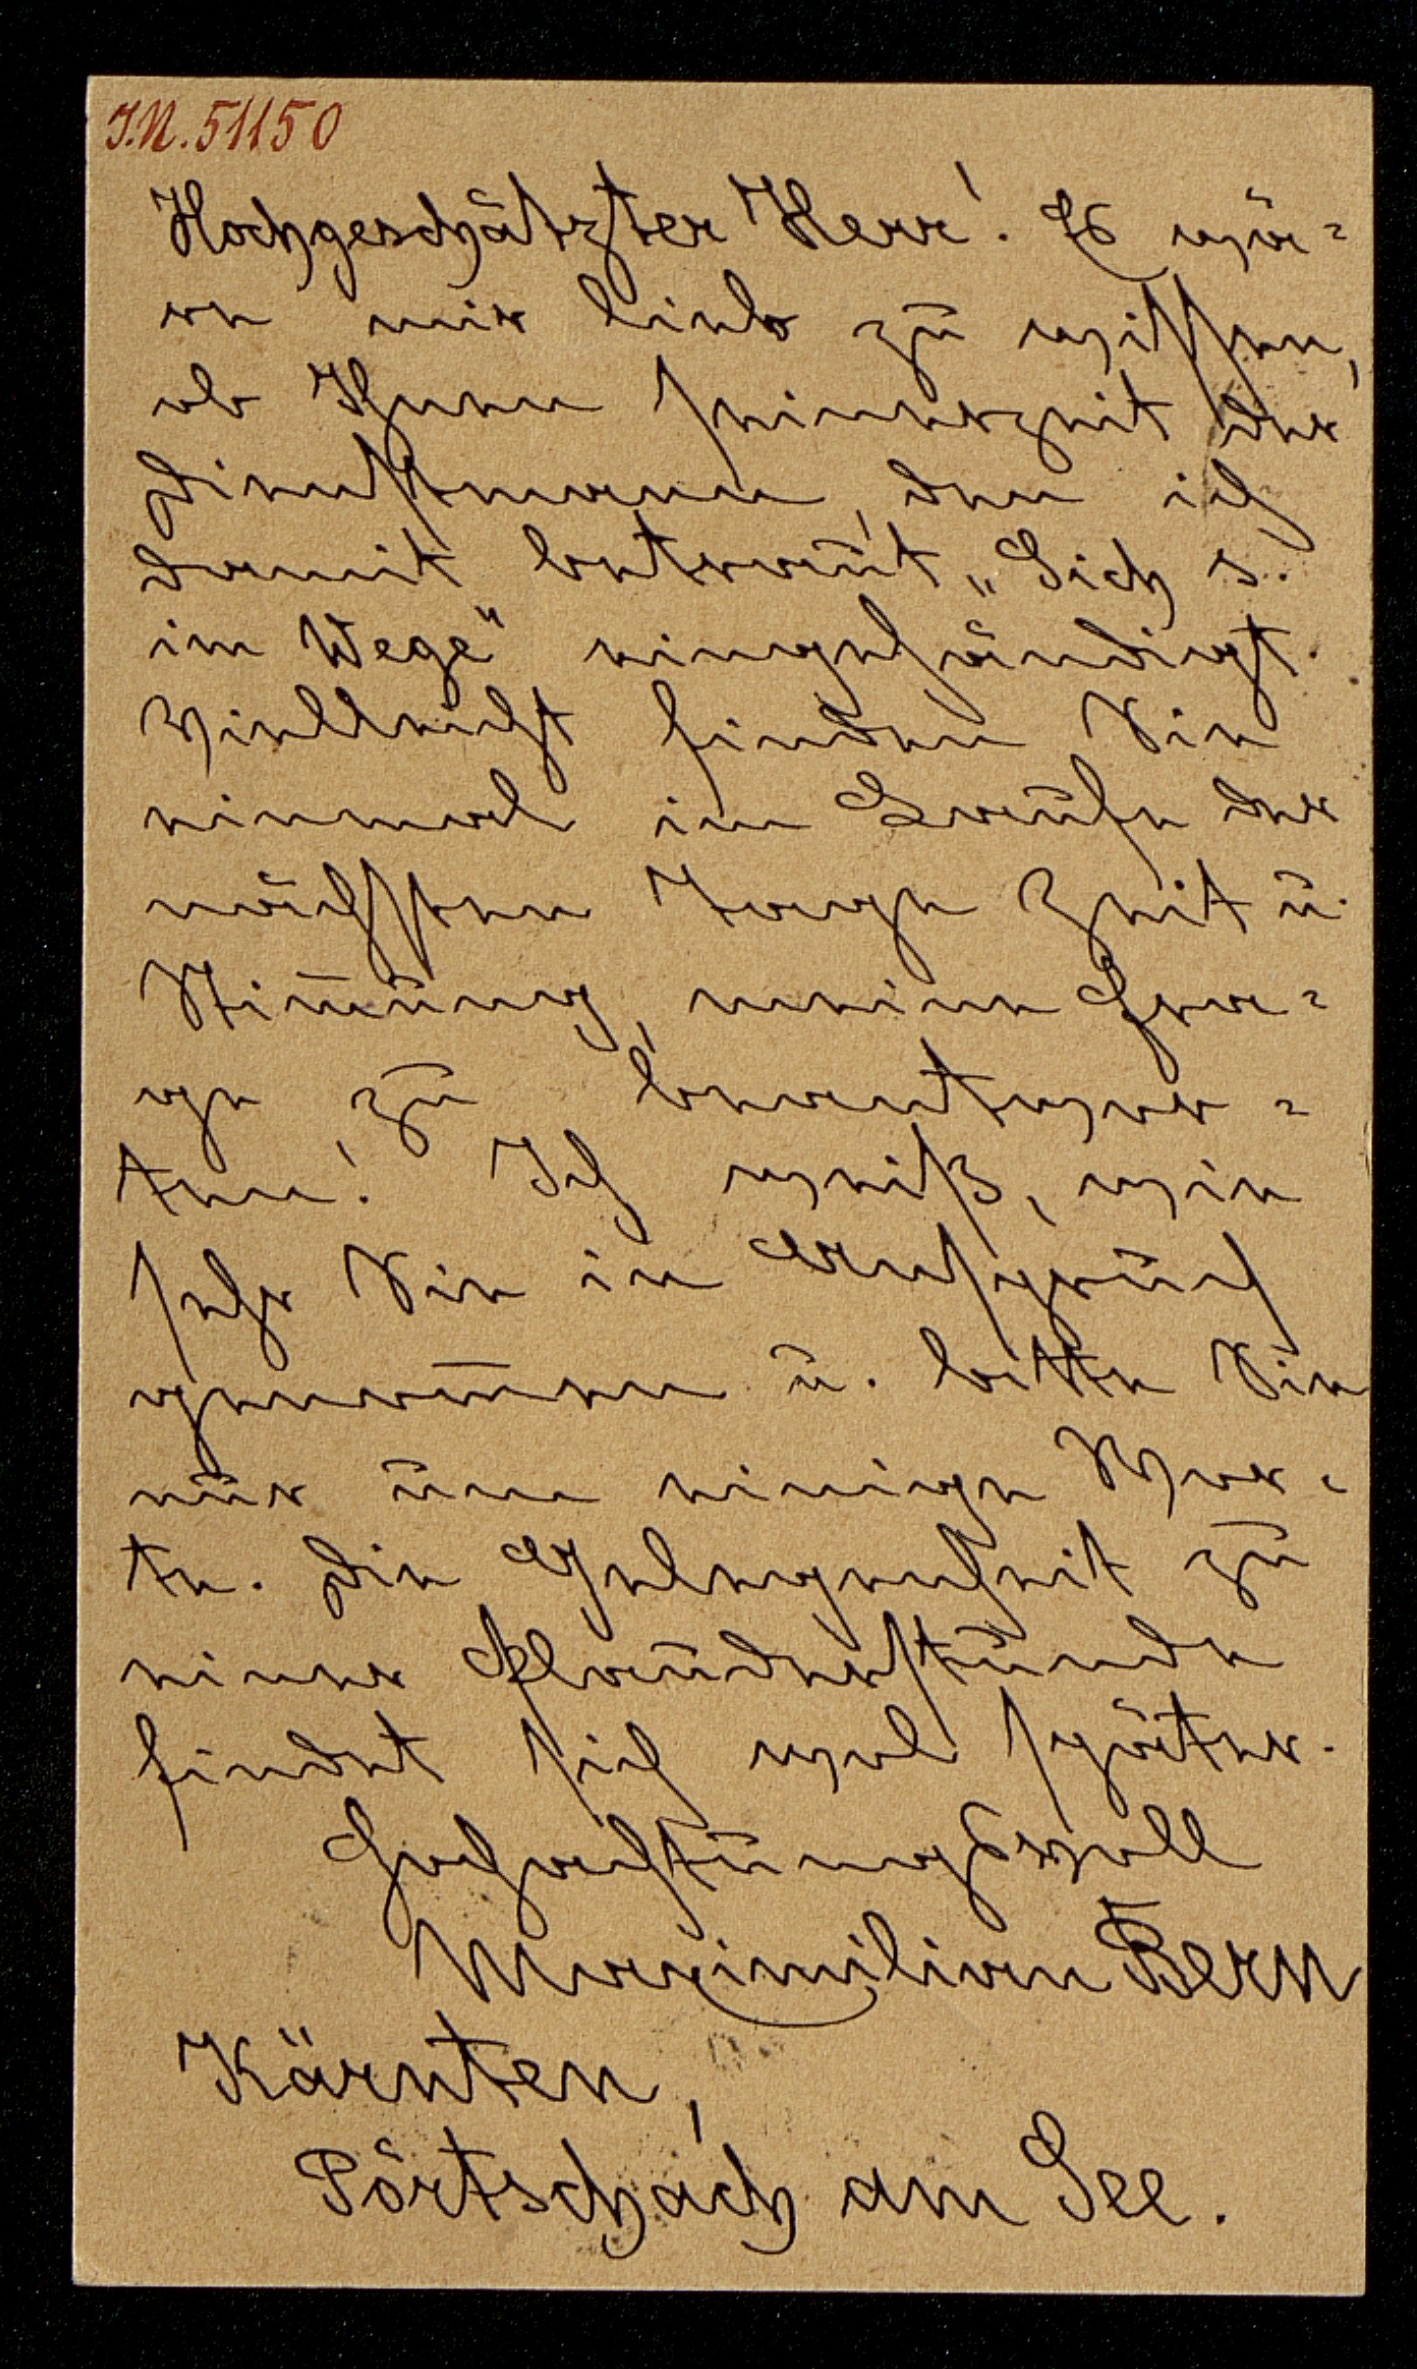 J.N. 51150
Hochgeschätzter Herr! Es wä=
re mir lieb zu wissen,
ob Ihnen seinerzeit der
Dienstmann, den ich
damit betraut, „Sich s.
im Wege" eingehändigt.
Vielleicht finden Sie
einmal im Laufe der
nächsten Tage Zeit u.
Stim̅ung, meine Fra=
ge zu beantwor=
ten! Ich weiß, wie
sehr Sie in Anspruch
genom̅en u. bitte Sie
nur um einige Wor=
te. Die Gelegenheit zu
einer Plauderstunde
findet sich wol später.
Hochachtungsvoll
Maximilian Bern
Kärnten,
Pörtschach am See.